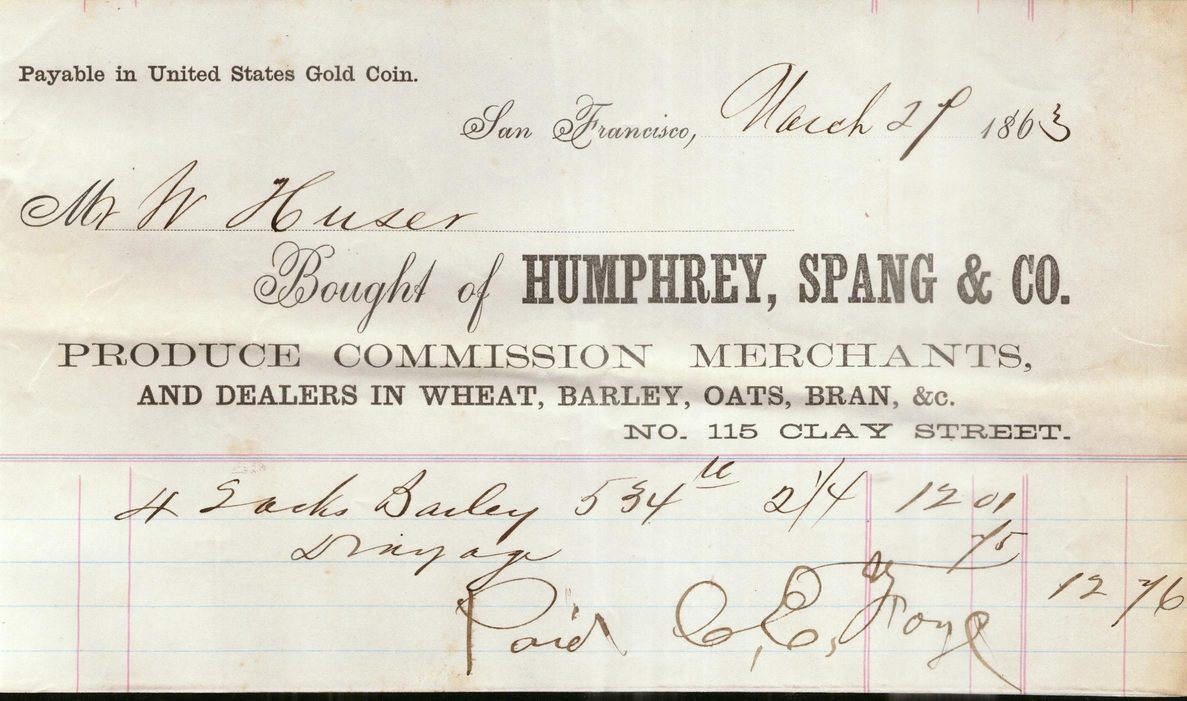 Payable in United States Gold Coin.
San Francisco, March 27 1863
Mr W Huser
Bought of HUMPHREY, SPANG & CO.
PRODUCE COMMISSION MERCHANTS,
AND DEALERS IN WHEAT, BARLEY, OATS, BRAN, &c.
NO. 115 CLAY STREET.
4 Sacks Barley 534 lb 2 1/4 12 01
Drayage 75
12 76
Paid C, E, Foye